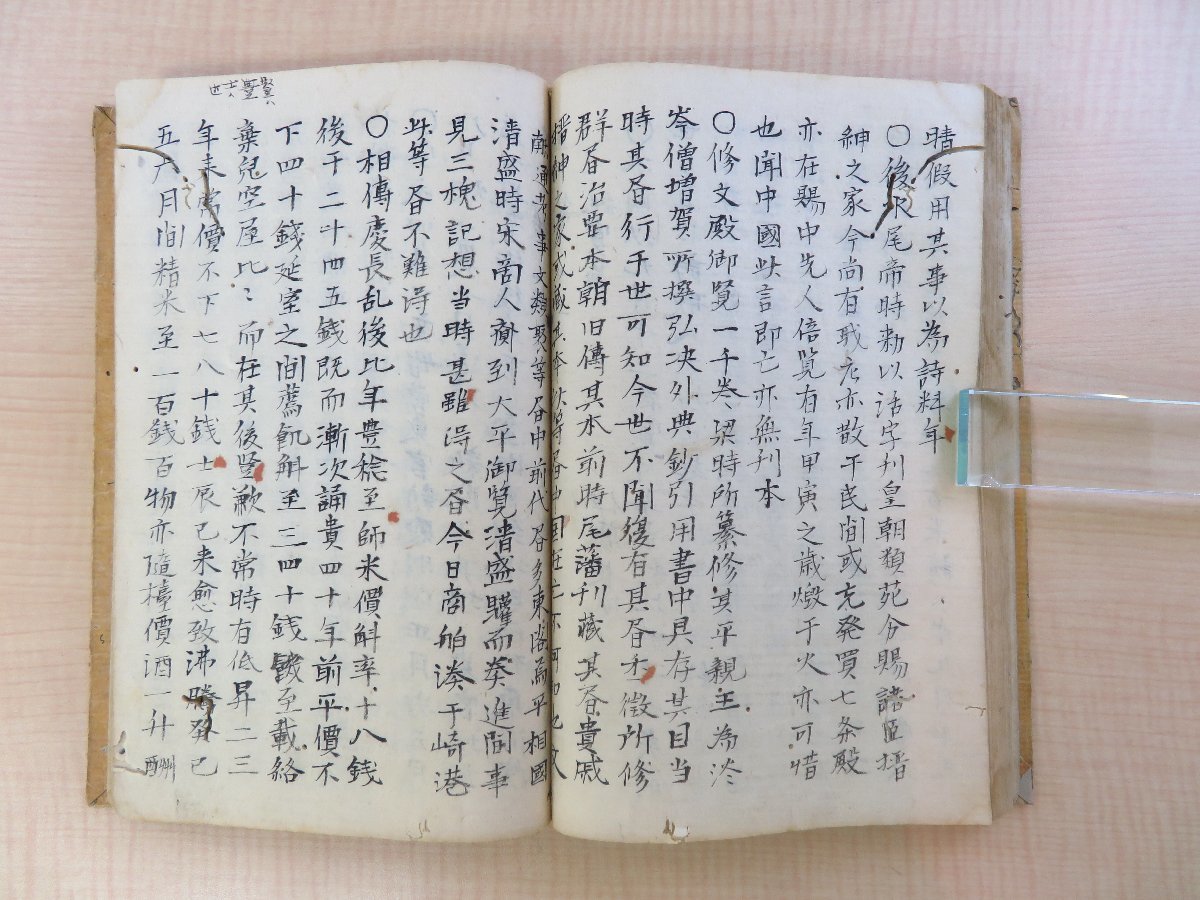 晴假用其事以為詩料年
〇後水尾帝時勅以活字刊皇朝類苑分賜諸臣搢
紳之家今尚有或亦散于民間或充発買七条殿
亦在賜中先人倍覧有年甲寅之歳燬于火亦可惜
也聞中國此言即亡亦無刊本
〇修文殿御覧一千巻梁時所纂修其平親王為
岑僧増賀所撰弘决外典鈔引用書中具存其目当
時其㫪行于世可知今世不聞復有其㫪徴所修
群㫪治要本朝旧傳其本前時尾藩刊藏其㫪貴戚
搢紳之家或藏其本
事文類聚等㫪中前代多東 為平相國
清盛時宋商人齎到大平御覧清盛購而 進聞事
見三槐記想当時甚雖得之㫪今日商舶湊于崎港
此等㫪不難得也
〇相傳慶長乱後比年豊稔至師米價斛率十八錢
後于二十四五錢既而漸次誦貴四十年前平價不
下四十錢延宝之間薦飢斛至三四十錢 至載絡
棄児空屋比〻而在其後豊歉不常時有低昇二三
年来常價不下七八十錢士辰已来愈致沸騰癸巳
五六月間精米至一百錢百物亦随擡價酒一升